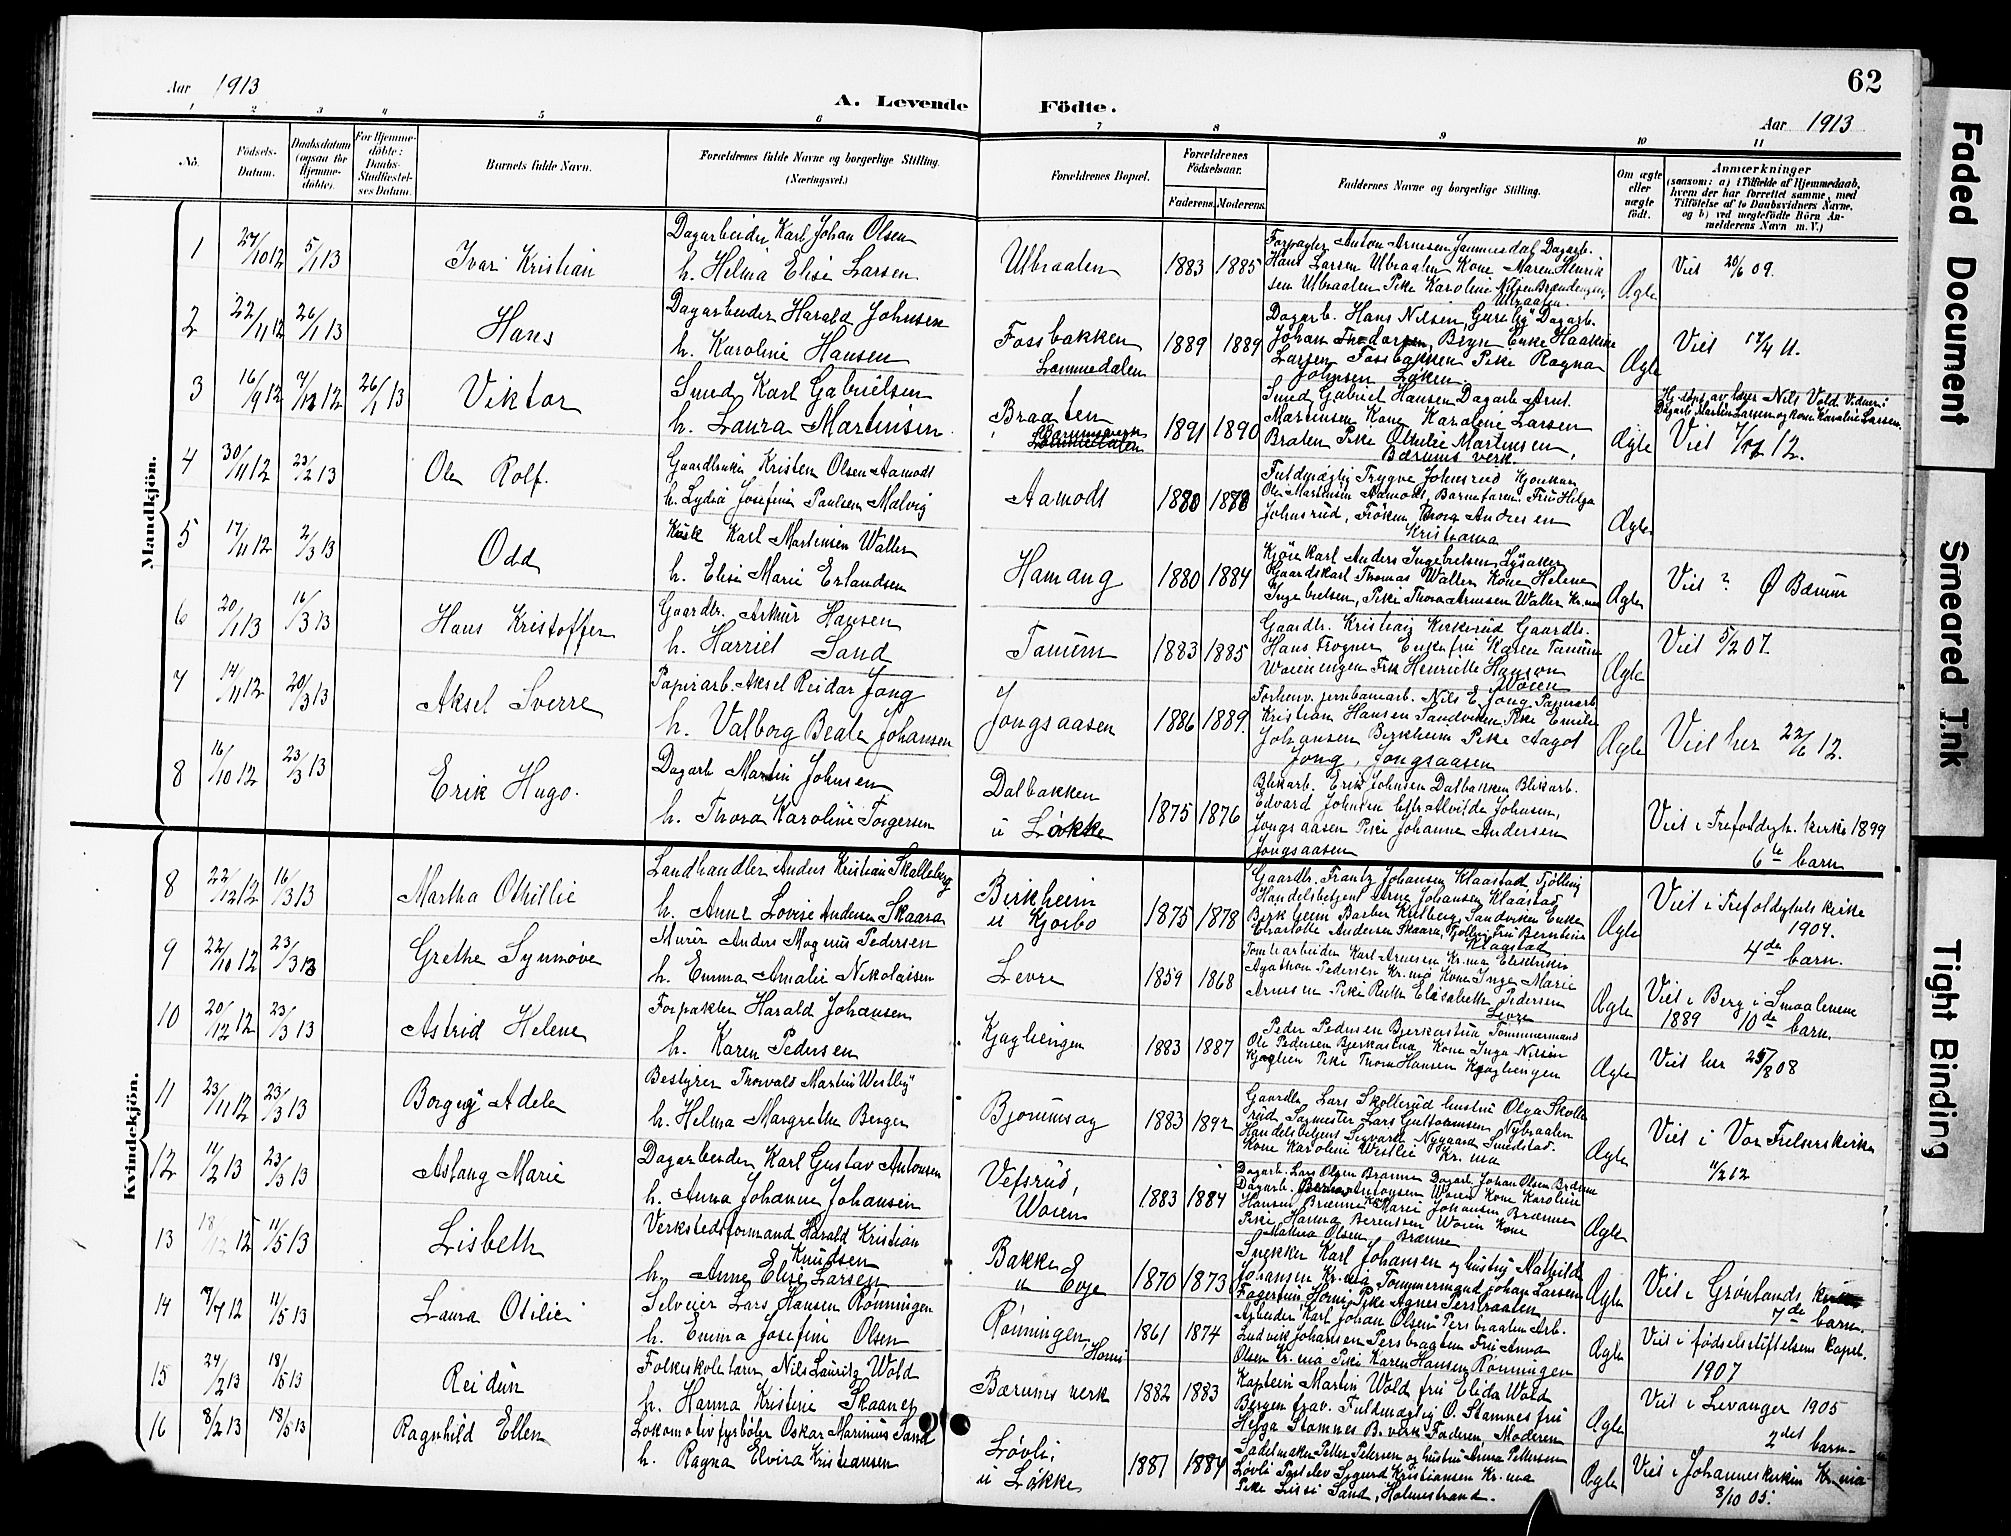 62
Aar 1913
A. Levende Födte.
Aar 1913
1 2 3 4 5 6 7 8 9 10 11
No.
Födsels-Datum.
Daabsdatum (ogsaa for Hjemmedöbte).
For Hjemmedöbte: Daabs-Stadfæstelses Datum.
Barnets fulde Navn.
Forældrenes fulde Navne og borgerlige Stilling. (Næringsvei.)
Forældrenes Bopæl.
Forældrenes Födselsaar.
Faderens. Moderens.
Faddernes Navne og borgerlige Stilling.
Om ægte eller uægte født.
Anmærkninger
(saasom: a) i Tilfælde af Hjemmedaab, hvem der har forrettet samme, med Tilföielse af to Daabsvidners Navne, og b) ved uægtefödte Börn Anmelderens Navn m. V.)
Mandkjön.
1 27/10 12 5/1 13 Ivar Kristian
Dagarbeider Karl Johan Olsen
h. Helma Elise Larsen
Ulbraaten 1883 1885
Hans Larsen Ulbraaten Kone Maren Henrik
sen Ulbraaten Pike Karoline Nilsen
Ulbraaten
Ægte Viet 20/6 09.
2 22/11 12 26/1 13 Hans
Dagarbeider Harald Johnsen
h. Karoline Hansen
Fossbakken
Lommedalen
1889 1889
Dagarb. Hans Nilsen, Dagarb.
Larsen Fossbakken Pike Ragna
Johnsen Løken
Ægte Viet 17/4 11.
3 16/9 12 7/12 12 26/1 13 Viktor
Smed Karl Gabrielsen
h. Laura Martinsen
Braaten
Bærumsverk
1891 1890
Smed Gabriel Hansen Dagarb. Arnt
Martinsen Kone Karoline Larsen
Braten Pike Othilie Martinsen,
Bærums verk
Ægte
Hj. døpt av lærer Nils Vold Vidner:
Dagarb. Martin Larsen og kone Karoline Larsen.
4 30/11 12 23/2 13 Ole Rolf.
Gaardbruker Kristen Olsen Aamodt
h. Lydia Josefine Paulsen Malvig
Aamodt 1880
Fuldmægtig Trygve Johnsrud
Ole Martinsen Aamodt, Barnefaren. Fru Helga
Johnsrud, Frøken Thora Andresen
Kristiania
Ægte
5 17/11 12 2/3 13 Odd
Kusk Karl Martinsen Waller
h. Elise Marie Erlandsen
Hamang 1880 1884
Kjørekarl Anders Ingebretsen Lysaker
Gaardskarl Thomas Waller Kone Helene
Ingebretsen, Pike Thora Arnesen Waller Kr.nia
Ægte Viet ? Ø Bærum
6 20/1 13 16/3 13 Hans Kristoffer
Gaardbr. Arthur Hansen
h. Harriet Sand
Tanum 1883 1885
Gaardbr. Kristian Kirkerud Gaardbr.
Hans Frogner Enkefru Karen Tanum
Woieningen Frk Henriette Hanson
Woien
Ægte Viet 5/2 07.
7 14/11 12 20/3 13 Aksel Sverre
Papirarb. Aksel Reidar Jong
h. Valborg Beate Johansen
Jongsaasen 1886 1889.
Forhenv. jernbanearb. Nils E. Jong Papirarb
Kristian Hansen Sandviken, Pike Emilie
Johansen Birkheim Pike Aagot
Jong, Jongsaasen
Ægte Viet her 22/6 12.
8 16/10 12 23/3 13 Erik Hugo.
Dagarb Martin Johnsen
h. Thora Karoline Torgersen
Dalbakken
u Løkke
1875 1876
Blikarb. Erik Johnsen Dalbakken Blikarb.
Edvard Johnsen Alvilde Johnsen,
Jongsaasen Pike Johanne Andersen
Jongsaasen
Viet i Trefoldigh. kirke 1899
6te barn
Kvindekjön.
8 22/12 12 16/3 13 Martha Othillie
Landhandler Anders Kristian Skalleberg
h. Anne Lovise Andersen Skaara
Birkheim
u Kjørbo
1875 1878
Gaardbr. Frantz Johansen Klaastad Tjølling
Handelsbetjent Arne Johansen Klaastad
Birkheim Barber Kulberg, Sandviken Enke
Charlotte Andersen Skaara, Tjølling Fru Berntine
Klaastad
Ægte
Viet i Trefoldighets kirke
1904.
4de barn.
9 22/10 12 23/3 13 Grethe Synnøve
Murer Anders Magnus Pedersen
h. Emma Amalie Nikolaisen
Levre 1859 1868
Tomtearbeider Karl Arnesen Kr.nia
Agathon Pedersen Kr.nia Kone Inga Marie
Arnesen Pike Ruth Elisabeth Pedersen
Levre
Ægte
Viet i Berg i Smaalenene
1889 10de barn.
10 20/12 12 23/3 13 Astrid Helene
Forpakter Harald Johansen
h. Karen Pedersen
Kjagliengen 1883 1887
Peder Pedersen Bjerkastua Tømmermand
Ole Pedersen Bjerkastua Kone Inga Nilsen
Kjaglien Pike Thora Hansen Kjaglengen
Ægte Viet her 25/8 08
11 23/11 12 23/3 13 Borgny Adele
Bestyrer Thorvald Martin Westby
h. Helma Margrethe Berger
Bjørumsag 1883 1892
Gaardbr Lars Skollerud hustru Olga Skolle
rud Sagmester Lars Nybraaten
Handelsbetjent Sigvard Nygaard Smedstad.
Kone Karoline Westlie Kr.nia
Ægte
Viet i Vor Frelserskirke
11/2 12
12 11/2 13 23/3 13 Aslaug Marie
Dagarbeider Karl Gustav Antonsen
h. Anna Johanne Johansen
Vefsrud,
Woien
1883 1884
Dagarb. Lars Olsen Brænne Dagarb. Johan Olsen Brænne
Dagarb. Antonsen Woien Kone Karoline
Hansen Brænne Marie Johansen Brænne
Pike Hanna Berentsen Woien Kone
Mathea Olsen, Brænne
Ægte
13 18/12 12 11/5 13 Lisbeth
Verkstedsformand Harald Kristian
Knudsen
h. Anne Elise Larsen
Bakke
u Evje
1870 1873
Snekker Karl Johansen og hustru Mathilde
Johansen Kr.nia Tømmermand Johan Larsen
Fagertun, Homi Pike Agnes Persbraaten
Ægte
Viet i Grønlands
7de barn.
14 17/7 12 11/5 13 Laura Otilie
Selveier Lars Hansen Rønningen
h. Emma Josefine Olsen
Rønningen, Horni
1861 1874
Arbeider Karl Johan Olsen Persbraaten Arb.
Ludvik Johansen Persbraaten Fru Anna
Olsen Kr.nia Pike Karen Hansen Rønningen
Ægte
Viet i fødselsstiftelsens kapel.
1907
15 24/2 13 18/5 13 Reidun
Folkeskolelærer Nils Lauritz Wold
h. Hanna Kristine Skaanes
Bærums verk 1882 1883
Kaptein Martin Wold fru Elida Wold
Bergen frav. Fuldmægtig O. Stamnes fru
Helga Stamnes B. verk Faderen Moderen
Ægte
Viet i Levanger 1905
2det barn
16 8/2 13 18/5 13 Ragnhild Ellen
Lokomotivfyrbøter Oskar Marinius Sand
h. Ragna Elvira Kristiansen
Løvli,
u Løkke
1881 1884
Sadelmaker Petter Petersen og hustru Anna Pettersen
Løvli Sigurd Kristiansen Kr.nia
Pike Lissi Sand, Holmestrand.
Ægte
Viet i Johanneskirken Kr.nia
8/10 05.
Faded Document
Smeared Ink
Tight Binding